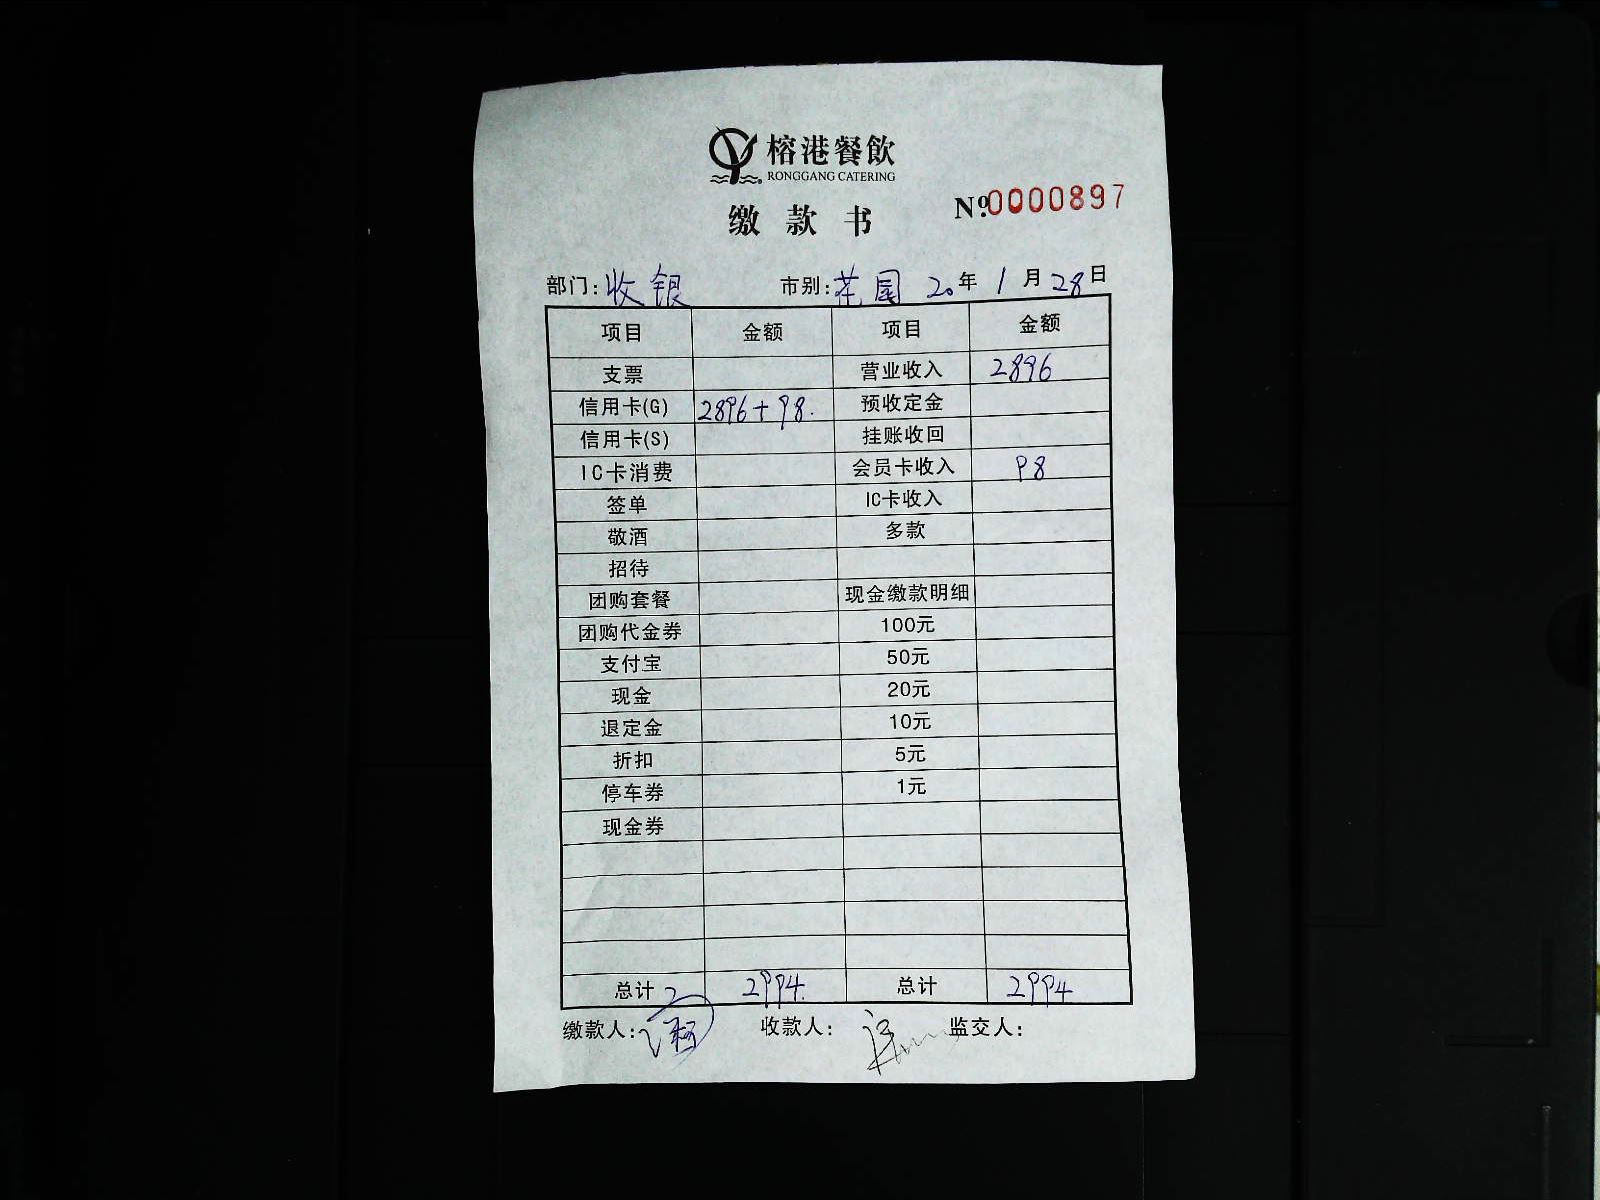 榕港餐飲
RONGGANG CATERING
缴款书
Nº.0000897
部门:收银 市别:花园 20年1月28日
项目 金额 项目 金额
支票 营业收入 2896
信用卡(G) 2896+98. 预收定金
信用卡(S) 挂账收回
IC卡消费 会员卡收入 98
签单 IC卡收入
敬酒 多款
招待
团购套餐 现金缴款明细
团购代金券 100元
支付宝 50元
现金 20元
退定金 10元
折扣 5元
停车券 1元
现金券
总计 2994. 总计 2994
缴款人: 收款人: 监交人: